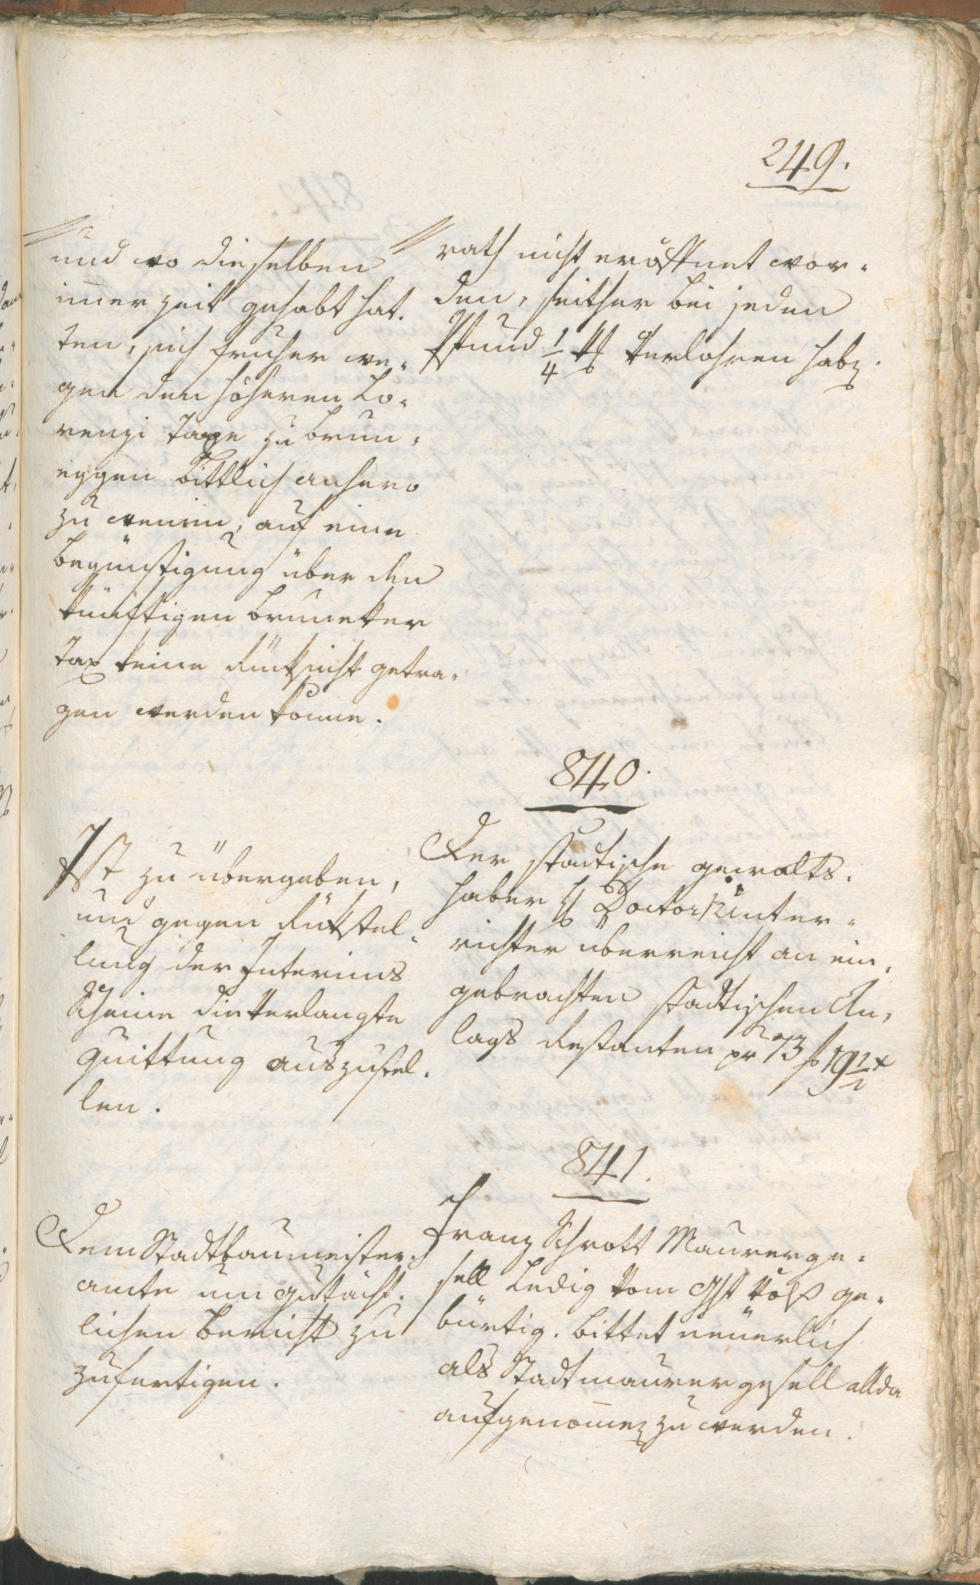 249.
und wo dieselben
immer zeit gehabt hat¬
ten, sich früher we¬
gen den höheren Lo¬
renzi Taxe zu Brun¬
eggen bittlich anhero
zu wenden, auf eine
Begünstigung über den
künftigen Brunecker
Tax keine Rücksicht getra¬
gen werden könne.
rath nicht eröffnet wor¬
den, seither bei jeden
Pfund 1/4 verlohren habe.
840.
Ist zu übergeben,
und gegen Rükstel¬
lung der Interims
Scheine die verlangte
Quittung auszustel¬
len.
Der stadtische gewalts¬
haber H Doctor Hinter¬
richter überreicht an ein¬
gebrachten stadtischen An¬
lags Restanten pr 73 f 19 1/2 x
841.
Dem Stadtbaumeister
amte um gutächt¬
lichen Bericht zu
zufertigen.
Franz Schrott Maurerge¬
sell ledig vom Ght ge¬
bürtig. bittet neüerlich
als Stadtmaurergesell allda
aufgenommen zu werden.